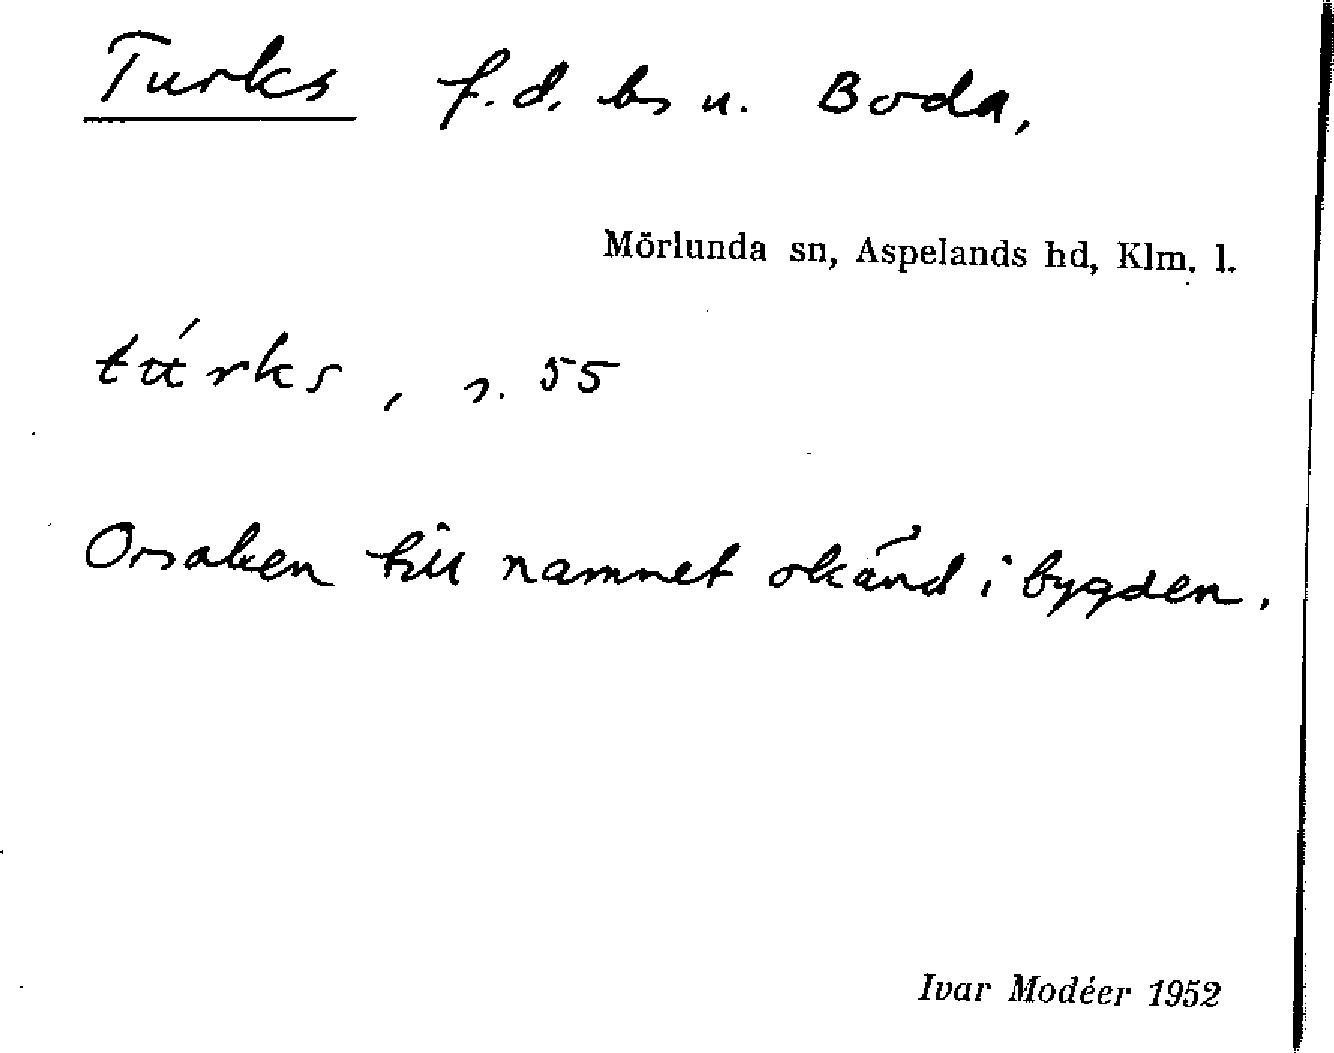 Turks f.d. bs u. Boda,
Mörlunda sn, Aspelands hd, Klm. l.
tu̇́rks, s. 55
Orsaken till namnet okänd i bygden.
Ivar Modéer 1952